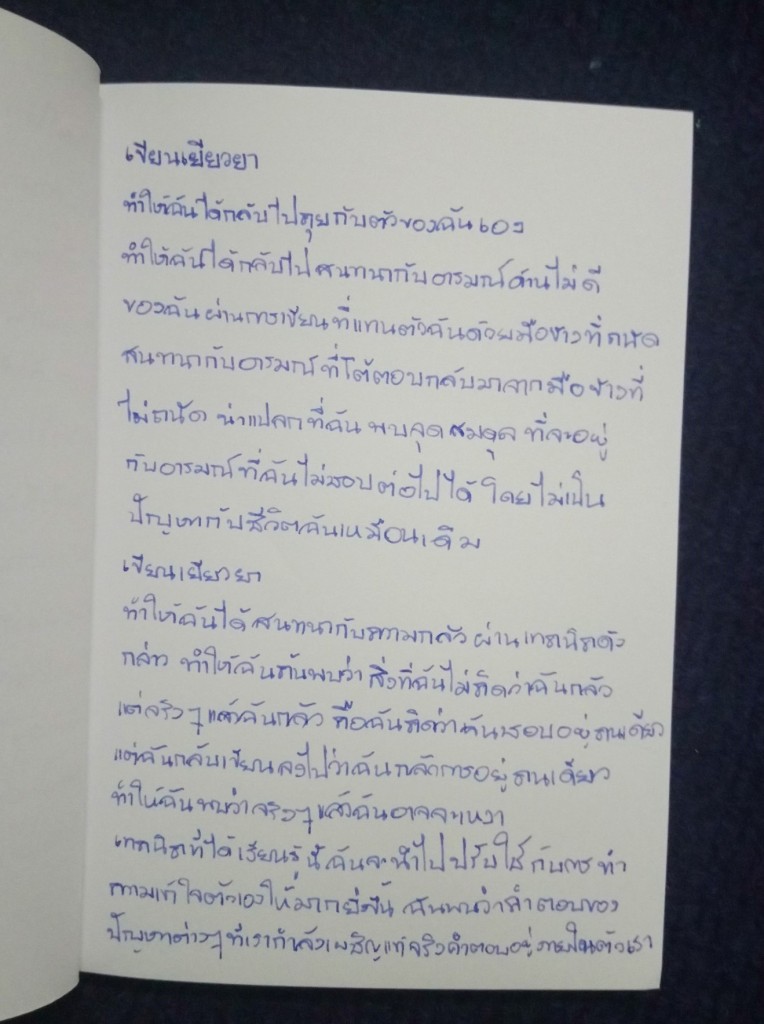 เขียนเยียวยา
ทำให้ฉันได้กลับไปคุยกับตัวของฉันเอง
ทำให้ฉันได้กลับไปสนทนากับอารมณ์ด้านไม่ดี
ของฉันผ่านการเขียนที่แทนตัวฉันด้วยมือข้างที่ถนัด
สนทนากับอารมณ์ที่โต้ตอบกลับมาจากมือข้างที่
ไม่ถนัด น่าแปลกที่ฉันพบจุดสมดุลที่จะอยู่
กับอารมณ์ที่ฉันไม่ชอบต่อไปได้ โดยไม่เป็น
ปัญหากับชีวิตฉันเหมือนเดิม
เขียนเยียวยา
ทำให้ฉันได้สนทนากับความกลัวผ่านเทคนิคดัง
กล่าว ทำให้ฉันค้นพบว่า สิ่งที่ฉันไม่คิดว่าฉันกลัว
แต่จริงๆแล้วฉันกลัว คือฉันคิดว่าฉันชอบอยู่คนเดียว
แต่ฉันกลับเขียนลงไปว่าฉันกลัวการอยู่คนเดียว
ทำให้ฉันพบว่าจริงๆแล้วฉันอาจจะเหงา
เทคนิคที่ได้เรียนรู้นี้ฉันจะนำไปปรับใช้กับการทำ
ความเข้าใจตัวเองให้มากยิ่งขึ้น ฉันพบว่าคำตอบของ
ปัญหาต่างๆที่เรากำลังเผชิญแท้จริงคำตอบอยู่ภายในตัวเรา